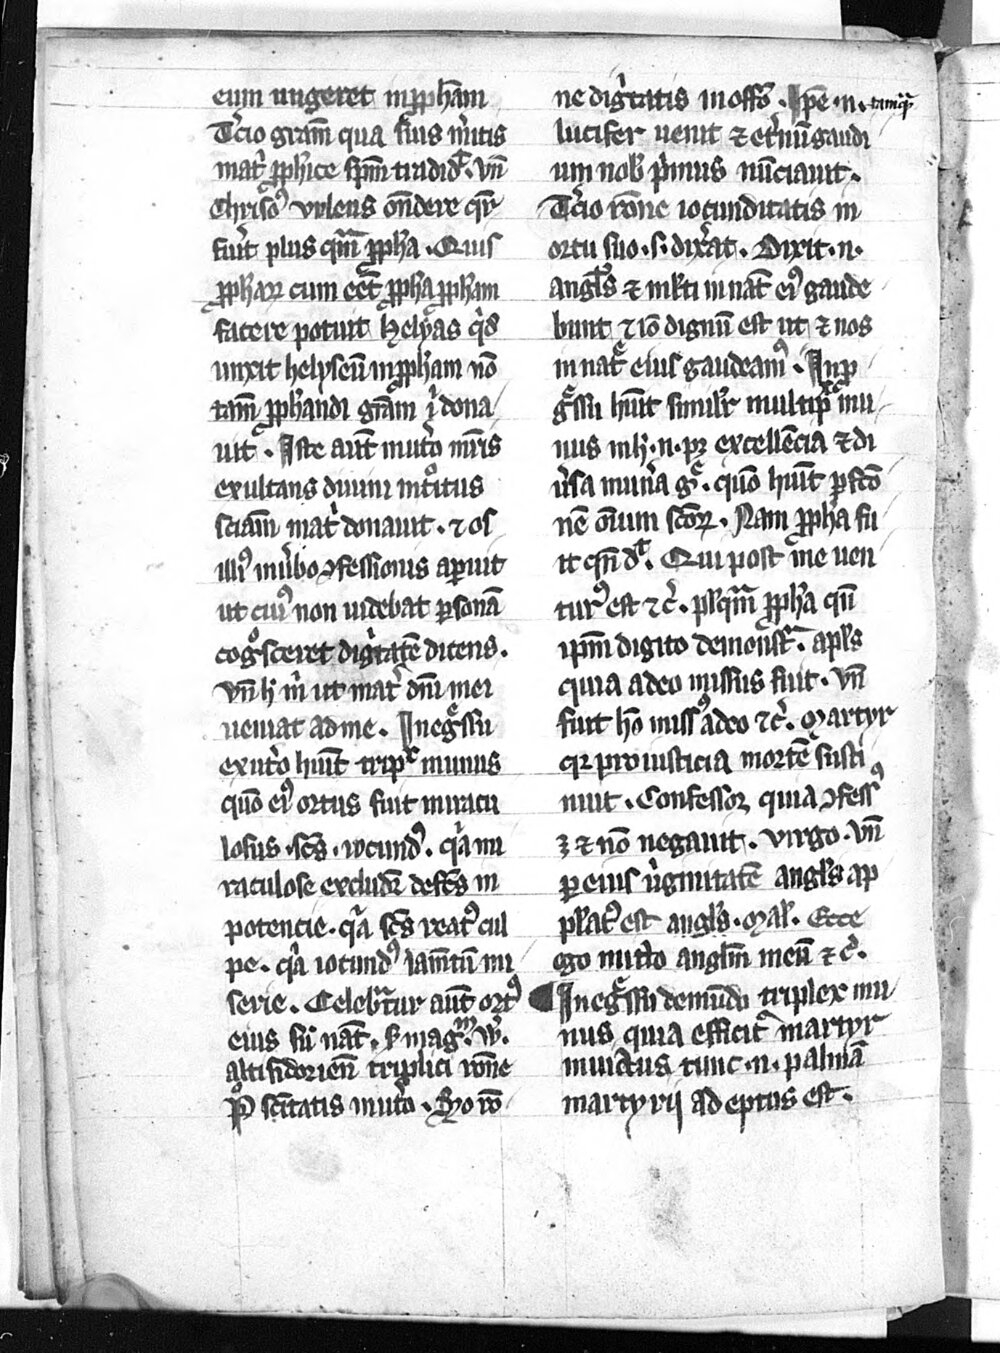 eum ungeret in ꝓph̄am
T͛cio grām qua fili᷒us m͛itis
mat͛ ꝓphīce sp̄m t͛ddidit. vn̄
Chrisoꝰ volens on̄dere qr̄
fuit plus qm̄ ꝓpha. Quis
ꝓpharꝝ cum eēt ꝓpha ꝓpham
facere potuit helyas qͥd
unxit helyseū in ꝓpham nō
tam̄ ꝓphandi grām ei dona
uit. Iste aūt in ut͛o mr̄is
exultans diuini int͛oitus
sciām mat͛ donauit. ⁊ os
illiꝰ in ủbo ꝯfessionis aꝑuit
ut cuiꝰ non uidebat ꝑsonā
cogͦsceret digͥtatē dicens.
vn̄ h̄ m̄ ut mat͛ dn̄i mei
veniat ad me. In egͤssu
ex ut͛o hūit trip͛ munus
quō eiꝰ ortus fuit miracu
losus. scs̄. iocundꝰ. qͥa mi
raculose excludit͛ defcs̄ in
potencie. qͥa scs̄ reatꝰ cul
pe. qͥa iocundꝰ lam̄tū mi
serie. Celebrat͛ur aūt ortꝰ
eius siue nat͛. ẜ magrm̄. w͛.
altisidorien̄ triplici rōne
Pͦ scītatis in ut͛o. Scḏo rō
ne digͥtatis in offō. Ipē. n. tamqͣ
lucifer uenit ⁊ et͛nū gaudi
um nob͛ pͥmus nūciauit.
T͛cio rōne iocunditatis in
ortu suo. s. dix͛at. Dixit. n.
angl̄s ⁊ mlti in nat͛ eiꝰ gaude
bunt ⁊ iō dignū est ut ⁊ nos
in nat͛ eius gaudeamꝰ. In pͬ
gͤssu hūit simil͛r multiplex mu
nus mlt͛. n. ꝑ excellēcia ⁊ di
u͛sa mun͛a gͤ. quō hūit ꝑfcō
nē om̄ium sc̄orꝝ. Nam ꝓpha fu
it cū dͭ. Qui post me uen
turꝰ est ⁊ c͛. plꝰqm̄ ꝓpha qn̄
ip̄m digito demonstͣ. apl̄s
quia a deo missus fuit. vn̄
fuit hō missꝰ a deo ⁊ c͛. Martyr
qꝛ pro iusticia mortē susti
nuit. Confessor quia ꝯfessꝰ
ē ⁊ nō negauit. virgo. vn̄
ꝑ eius uͥginitatē angl̄s ap
pl̄atꝰ est angl̄s. Mal͛. Ecce
ego mitto angl̄m meū ⁊ c͛.
In egͤssu de mūdo triplex mu
nus quia efficit͛ martyr
inuictus tunc. n. palmā
martyrij adeptus est.